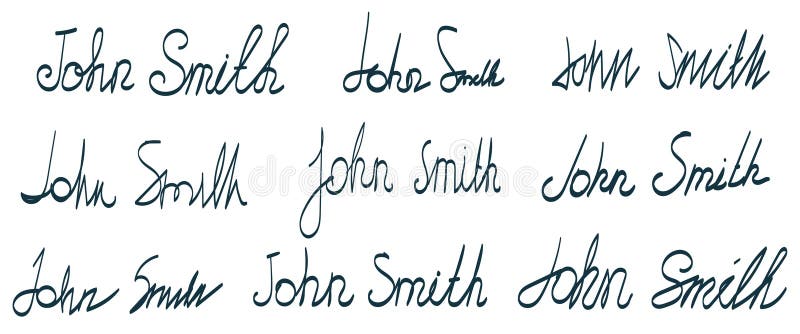 John Smith John Smith John Smith
John Smith John Smith John Smith
John Smith John Smith John Smith
dreamstime